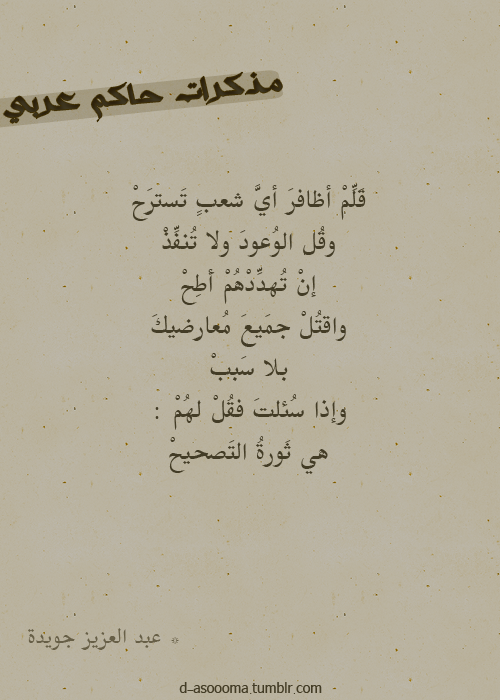 مذكرات حاكم عربي
قَلِّمْ أظافرَ أيَّ شعبٍ تَسترَحْ
وقُل الوُعودَ ولا تُنفِّذْ
إنْ تُهدِّدْهُمْ أطِحْ
واقتُلْ جمَيعَ مُعارضيكَ
بلا سَببْ
وإذا سُئلتَ فقُلْ لهُمْ :
هي ثَورةُ التَصحيحْ
☼ عبد العزيز جويدة
d-asoooma.tumblr.com